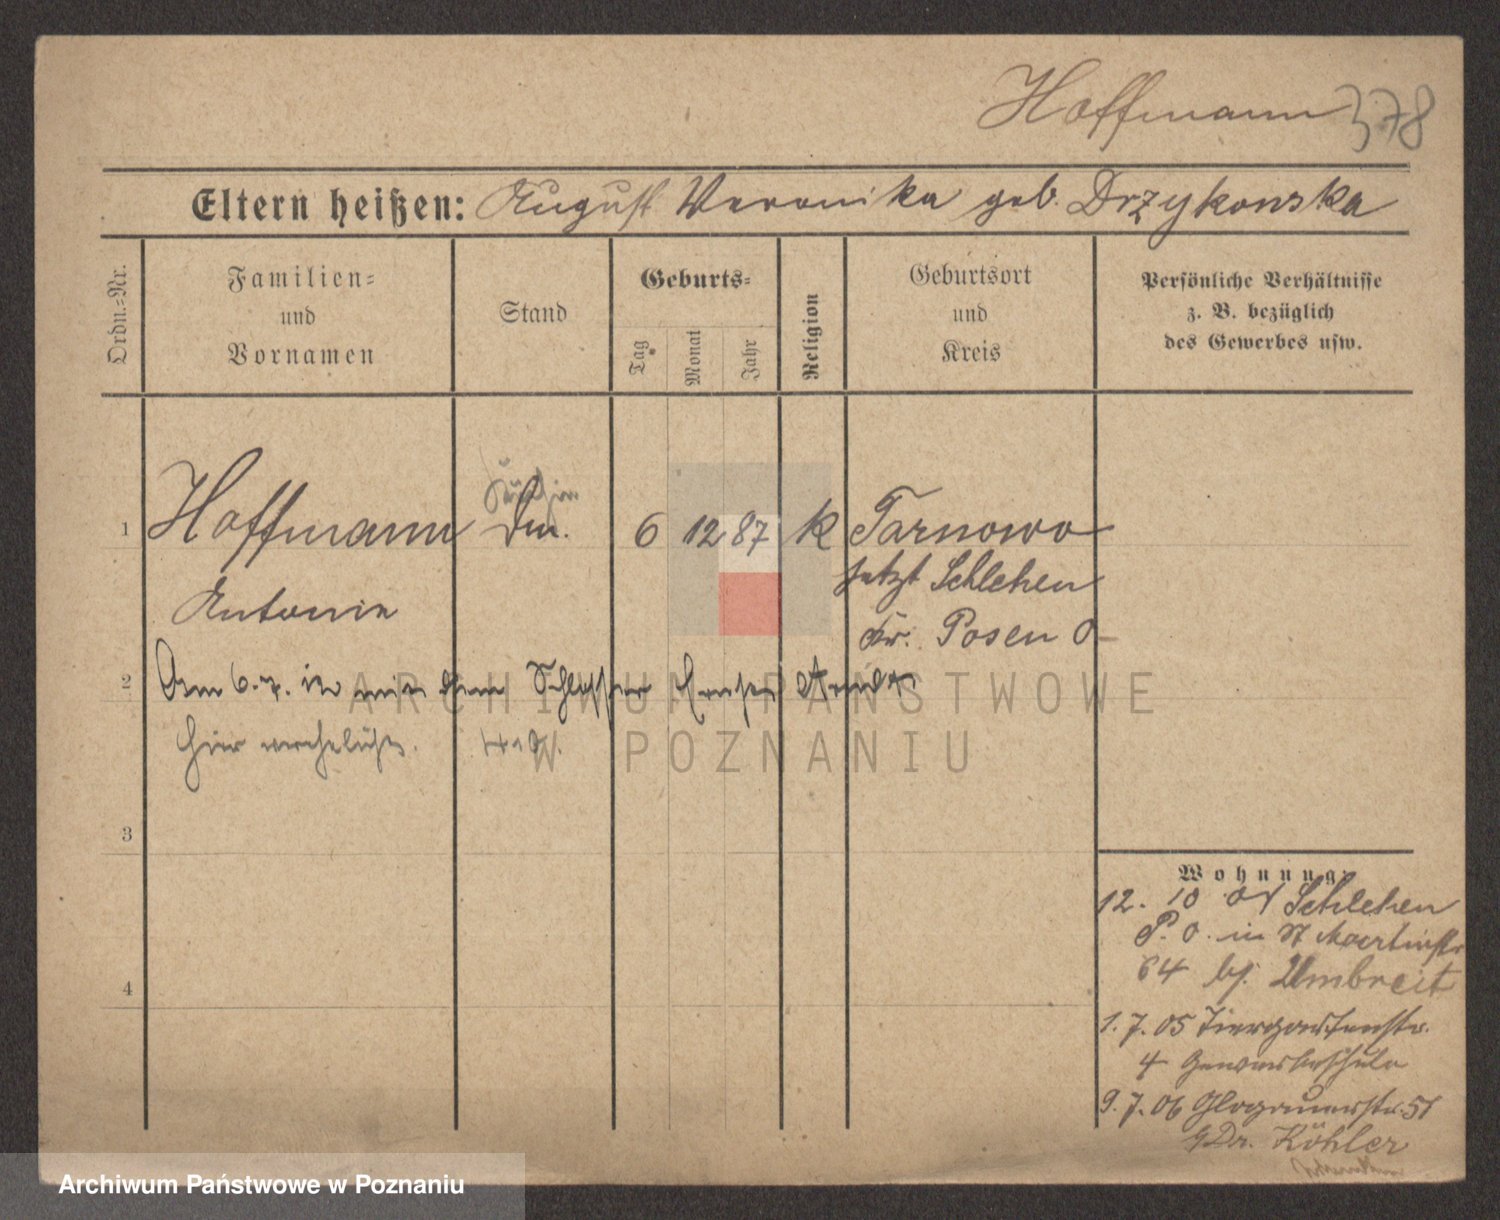 Hoffmann 378
Eltern heißen: August Veronika geb. Drzykonska
Ordn.=Nr.
Familien=
und
Vornamen
Stand
Geburts=
Tag
Monat
Jahr
Religion
Geburtsort
und
Kreis
Persönliche Verhältnisse
z. B. bezüglich
des Gewerbes usw.
Köchin
1 Hoffmann Dm. 6 12 87 k Tarnowo
jetzt Schlehen
Antonie
Kr. Posen O
2 Am 6.7. 12 mit dem Schlosser
hier verehelicht.
3
4
Wohnung
12. 10 04 Schlehen
P. O. in St Martinstr
64 bj. Umbreit
1. 7. 05 Tiergartenstr.
4 Gewerbeschule
9. 7. 06 Glogauerstr. 51
Dr. Köhler
ARCHIWUM PAŃSTWOWE
W POZNANIU
Archiwum Państwowe w Poznaniu